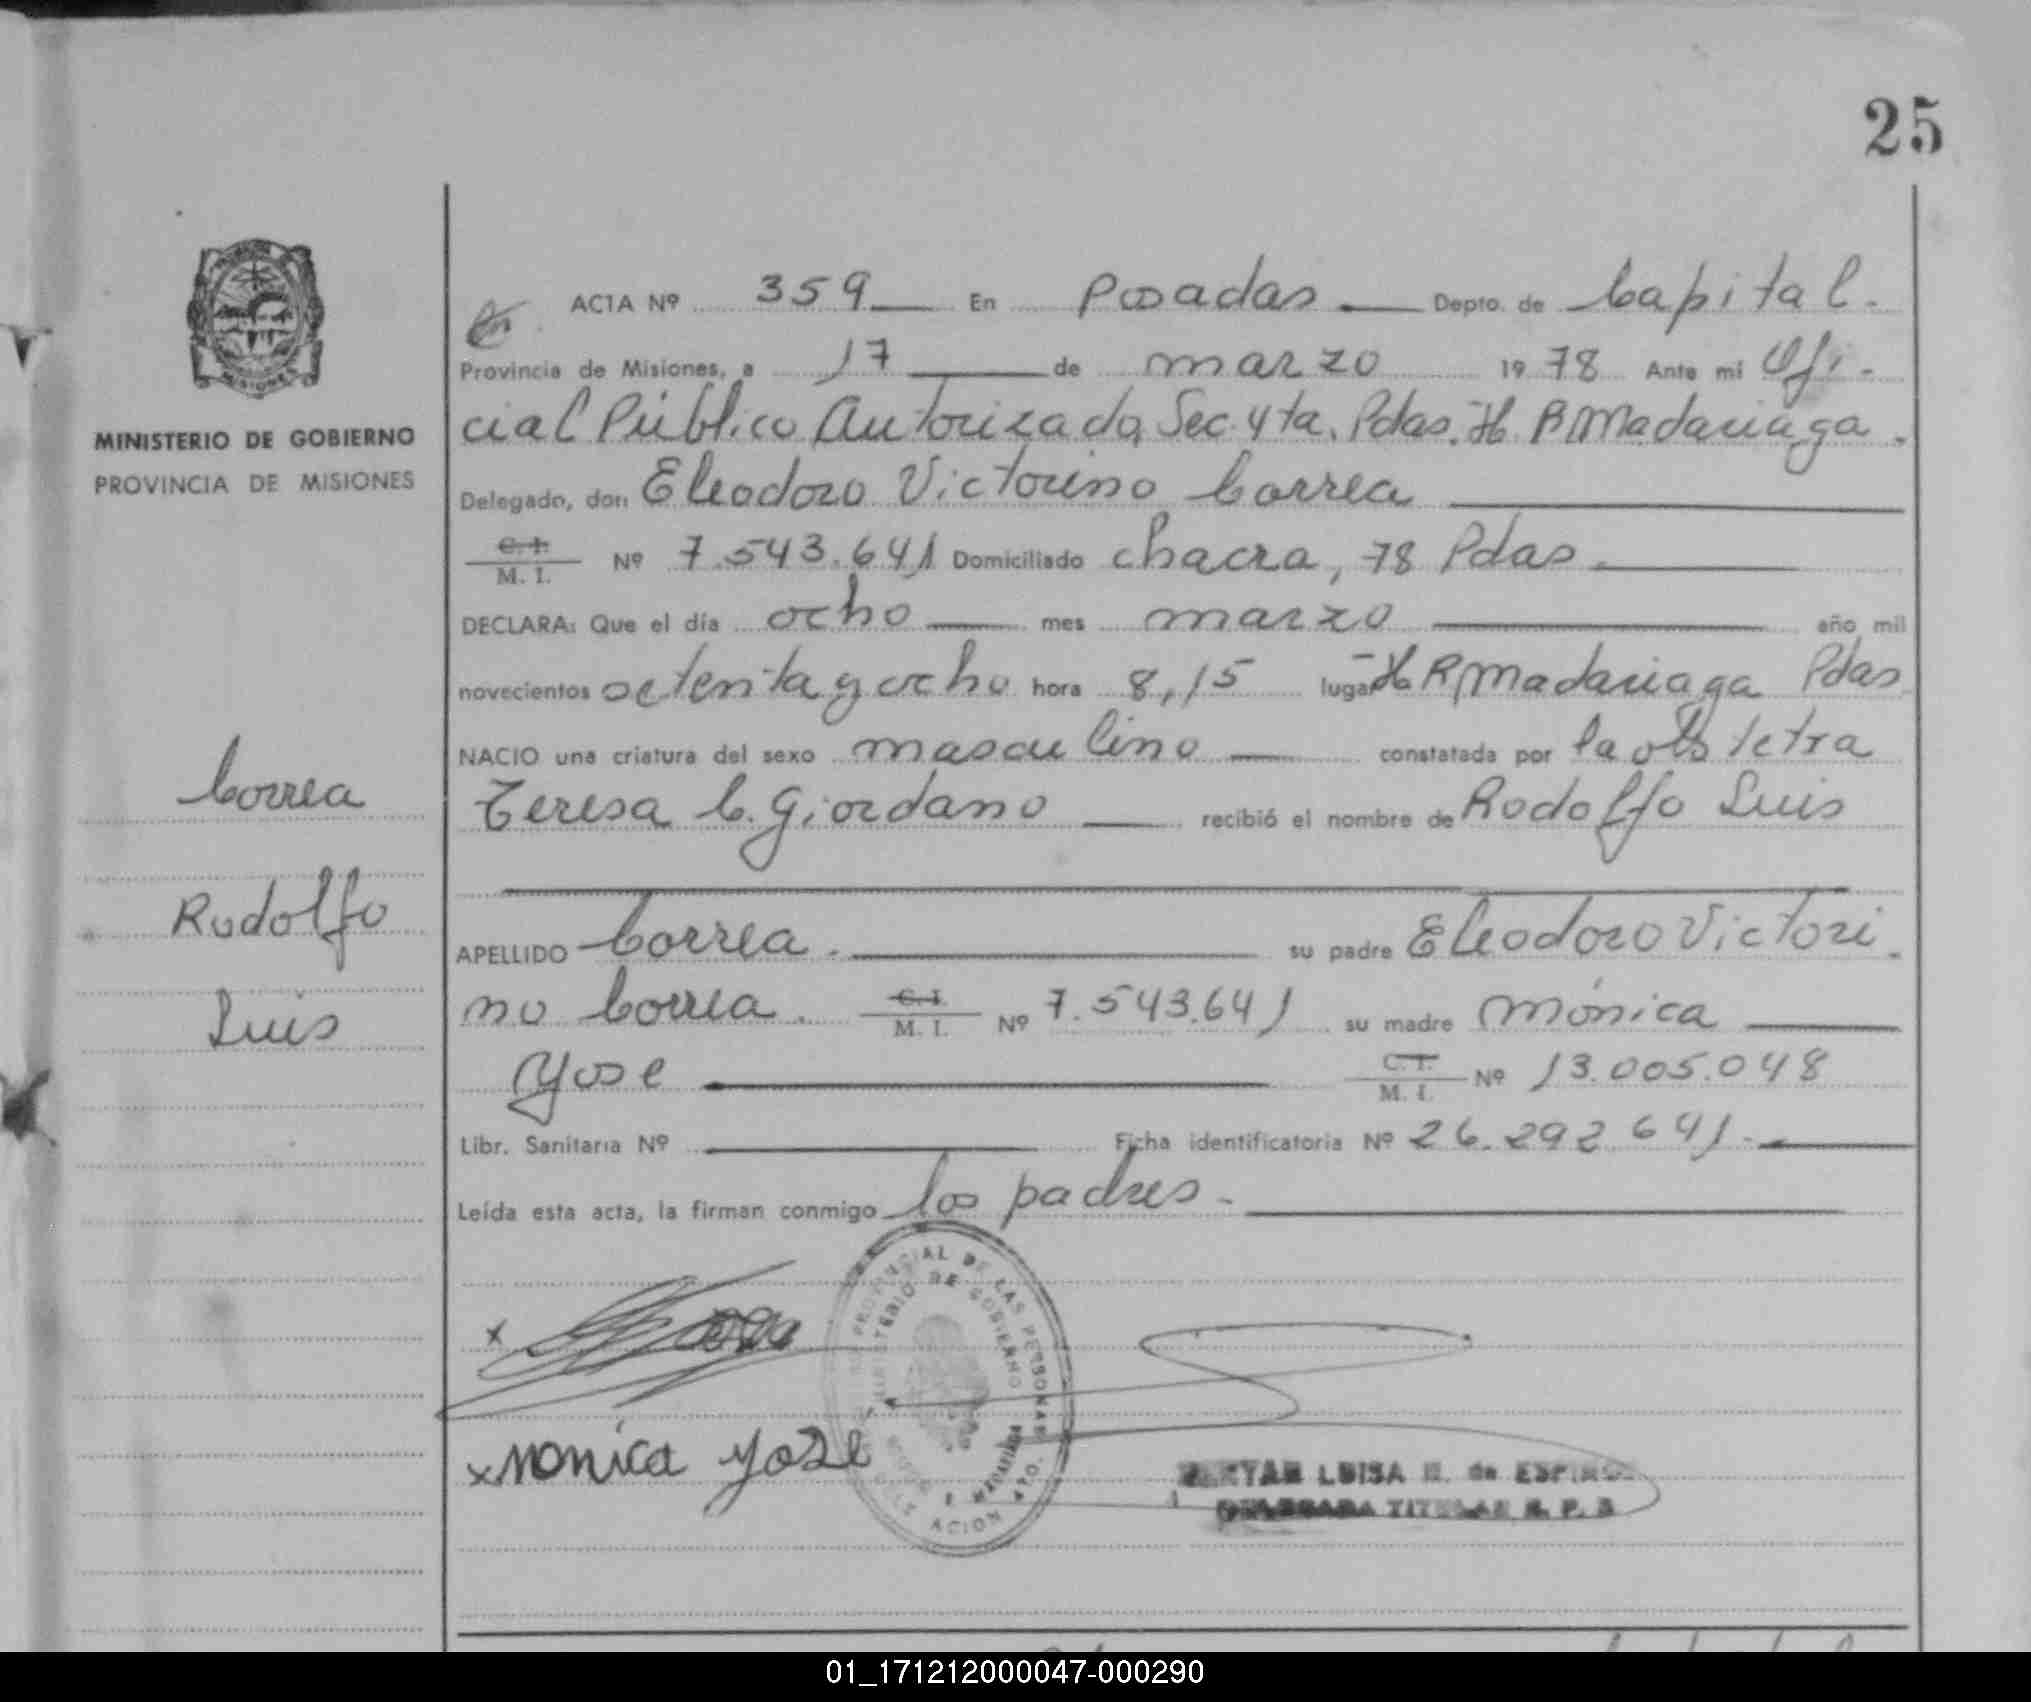 25
ACTA Nº 359 En Posadas Depto. de Capital.
Provincia de Misiones, a 17 de marzo 1978 Ante mi Ofi-
cial Público Autorizado, Sec. 4ta. Pdas. H. R Madariaga.
MINISTERIO DE GOBIERNO
PROVINCIA DE MISIONES
Delegado, don Eleodoro Victorino Correa
C. I. / M. I. Nº 7.543.641 Domiciliado chacra, 78 Pdas.
DECLARA: Que el día ocho mes marzo año mil
novecientos setenta y ocho hora 8,15 lugar H R Madariaga Pdas
NACIO una criatura del sexo masculino constatada por la obstetra
Teresa C. Giordano recibió el nombre de Rodolfo Luis
APELLIDO Correa. su padre Eleodoro Victori-
no Correa. C. I. / M. I. Nº 7.543.641 su madre Mónica
Yose C. I. / M. I. Nº 13.005.048
Libr. Sanitaria Nº Ficha identificatoria Nº 26.292.641.
Leída esta acta, la firman conmigo los padres.
Correa
Rodolfo
Luis
MISIONES
PROVINCIAL DE LAS PERSONAS
MINISTERIO DE GOBIERNO
x
x Monica Yose
LUISA H. de
TITULAR R. P.
01_171212000047-000290